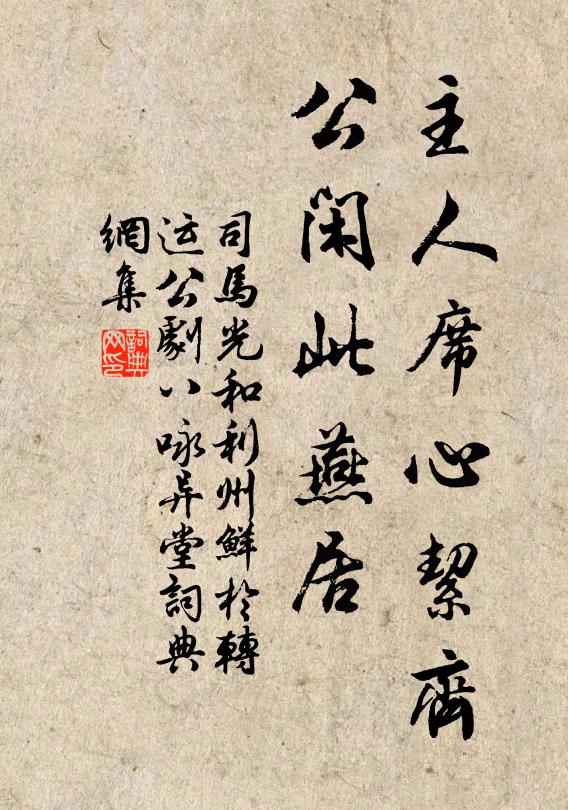 主人席心絜齊
公閑此燕居
司馬光和利州鮮於轉
运公劇八咏异堂詞典
網集
詞典网印